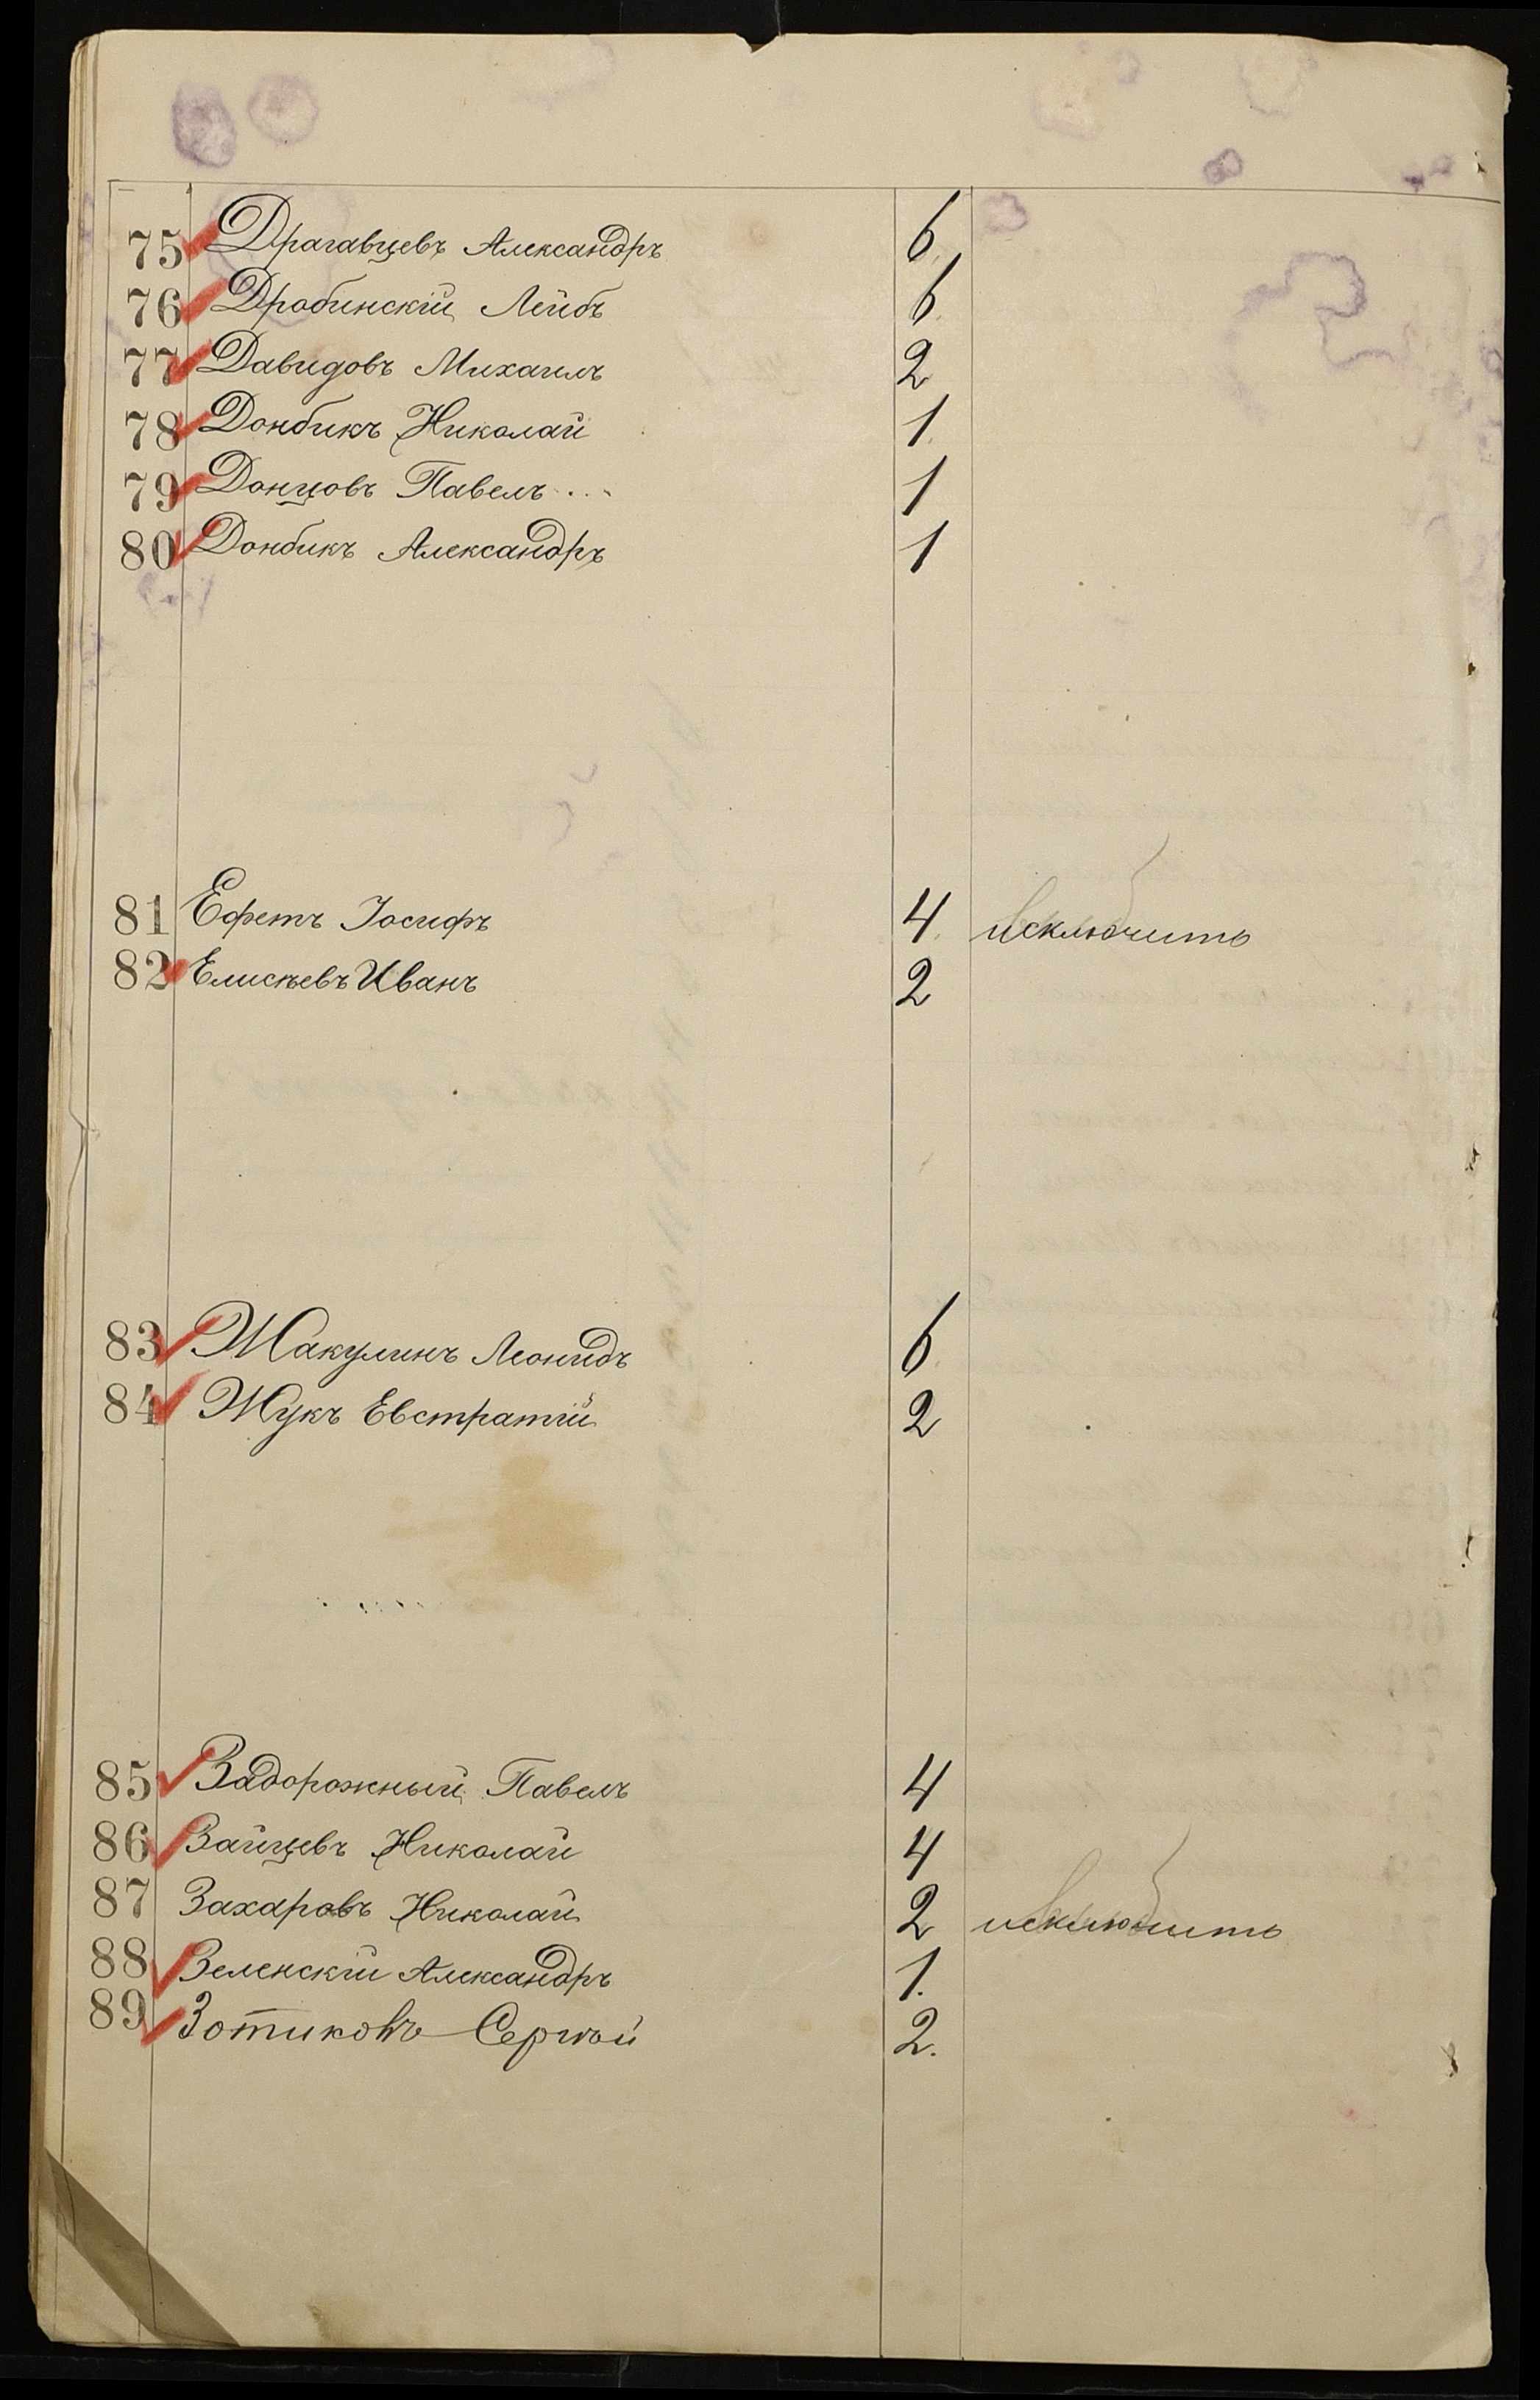 75 Драгавцевъ Александръ 6.
76 Дробинскій Лейбъ 6.
77 Давидовъ Михаилъ 2
78 Донбикъ Николай 1.
79 Донцовъ Павелъ . . . 1
80 Донбикъ Александръ 1
81 Ефетъ Іосифъ 4. исключить
82 Елисѣевъ Иванъ 2
83 Жакулинъ Леонидъ 6.
84 Жукъ Евстратій 2
85 Задорожный Павелъ 4
86 Зайцевъ Николай 4
87 Захаровъ Николай 2 исключить
88 Зеленскій Александръ 1.
89 Зотиковъ Сергѣй 2.